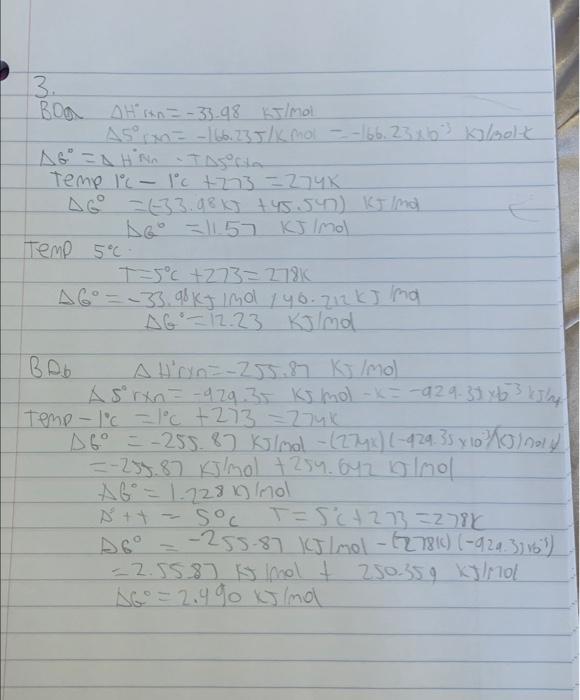 3.
BDa ΔH°rxn = -33.98 KJ/mol
ΔS°rxn = -166.23J/K mol = -166.23x10⁻³ KJ/mol-k
ΔG° = ΔH°rxn - TΔS°rxn
Temp 1°c - 1°c +273 = 274K
ΔG° = (-33.98KJ +45.547) KJ/mol
ΔG° = 11.57 KJ/mol
Temp 5°c.
T=5°c +273 = 278K
ΔG° = -33.98KJ/mol / 46.212 KJ/mol
ΔG° = 12.23 KJ/mol
BDb ΔH°rxn = -255.87 KJ/mol
ΔS°rxn = -929.35 KJ mol -k = -929.35 x10⁻³ KJ/
Temp - 1°c = 1°c +273 = 274K
ΔG° = -255.87 KJ/mol -(274k)(-929.35 x10⁻³ KJ/mol
= -255.87 KJ/mol + 254.642 KJ/mol
ΔG° = 1.228 KJ/mol
= 5°c T = 5°c + 273 = 278K
ΔG° = -255.87 KJ/mol - (278K)(-929.35x10⁻³)
= 2.5587 KJ/mol + 250.359 KJ/mol
ΔG° = 2.490 KJ/mol